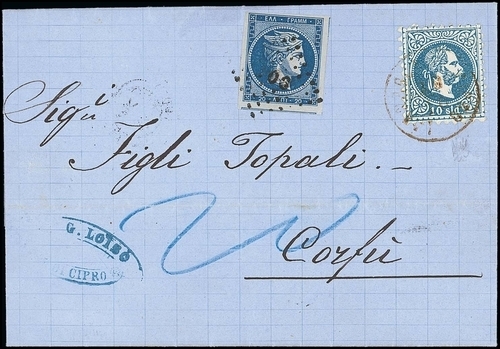 ΕΛΛ ΓΡΑΜΜ
20 ΛΕΠ 20
10 sld
Sigri
Figli Topali.
Corfù
20
G. LOÏSO
CIPRO